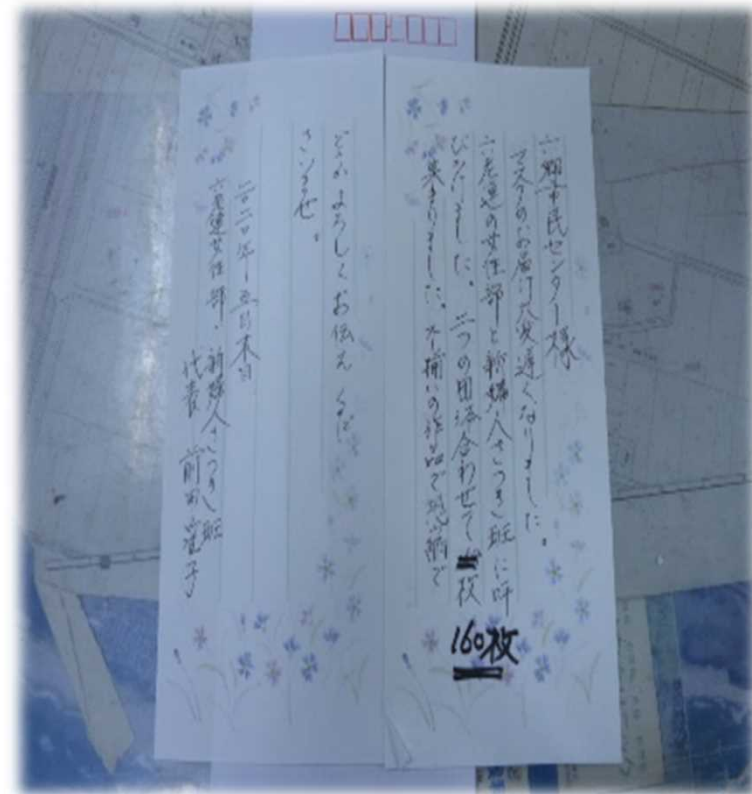 六郷市民センター様
マスクのお届け大変遅くなりました。
六老連の女性部と新婦人さつき班に呼
びかけました。二つの団体合わせて 枚
160枚
集まりました。不揃いの作品で恐縮で
どうかよろしくお伝えくだ
さいませ。
二〇二〇年 五月 末日
六老連女性部・新婦人さつき班
代表 前田 子